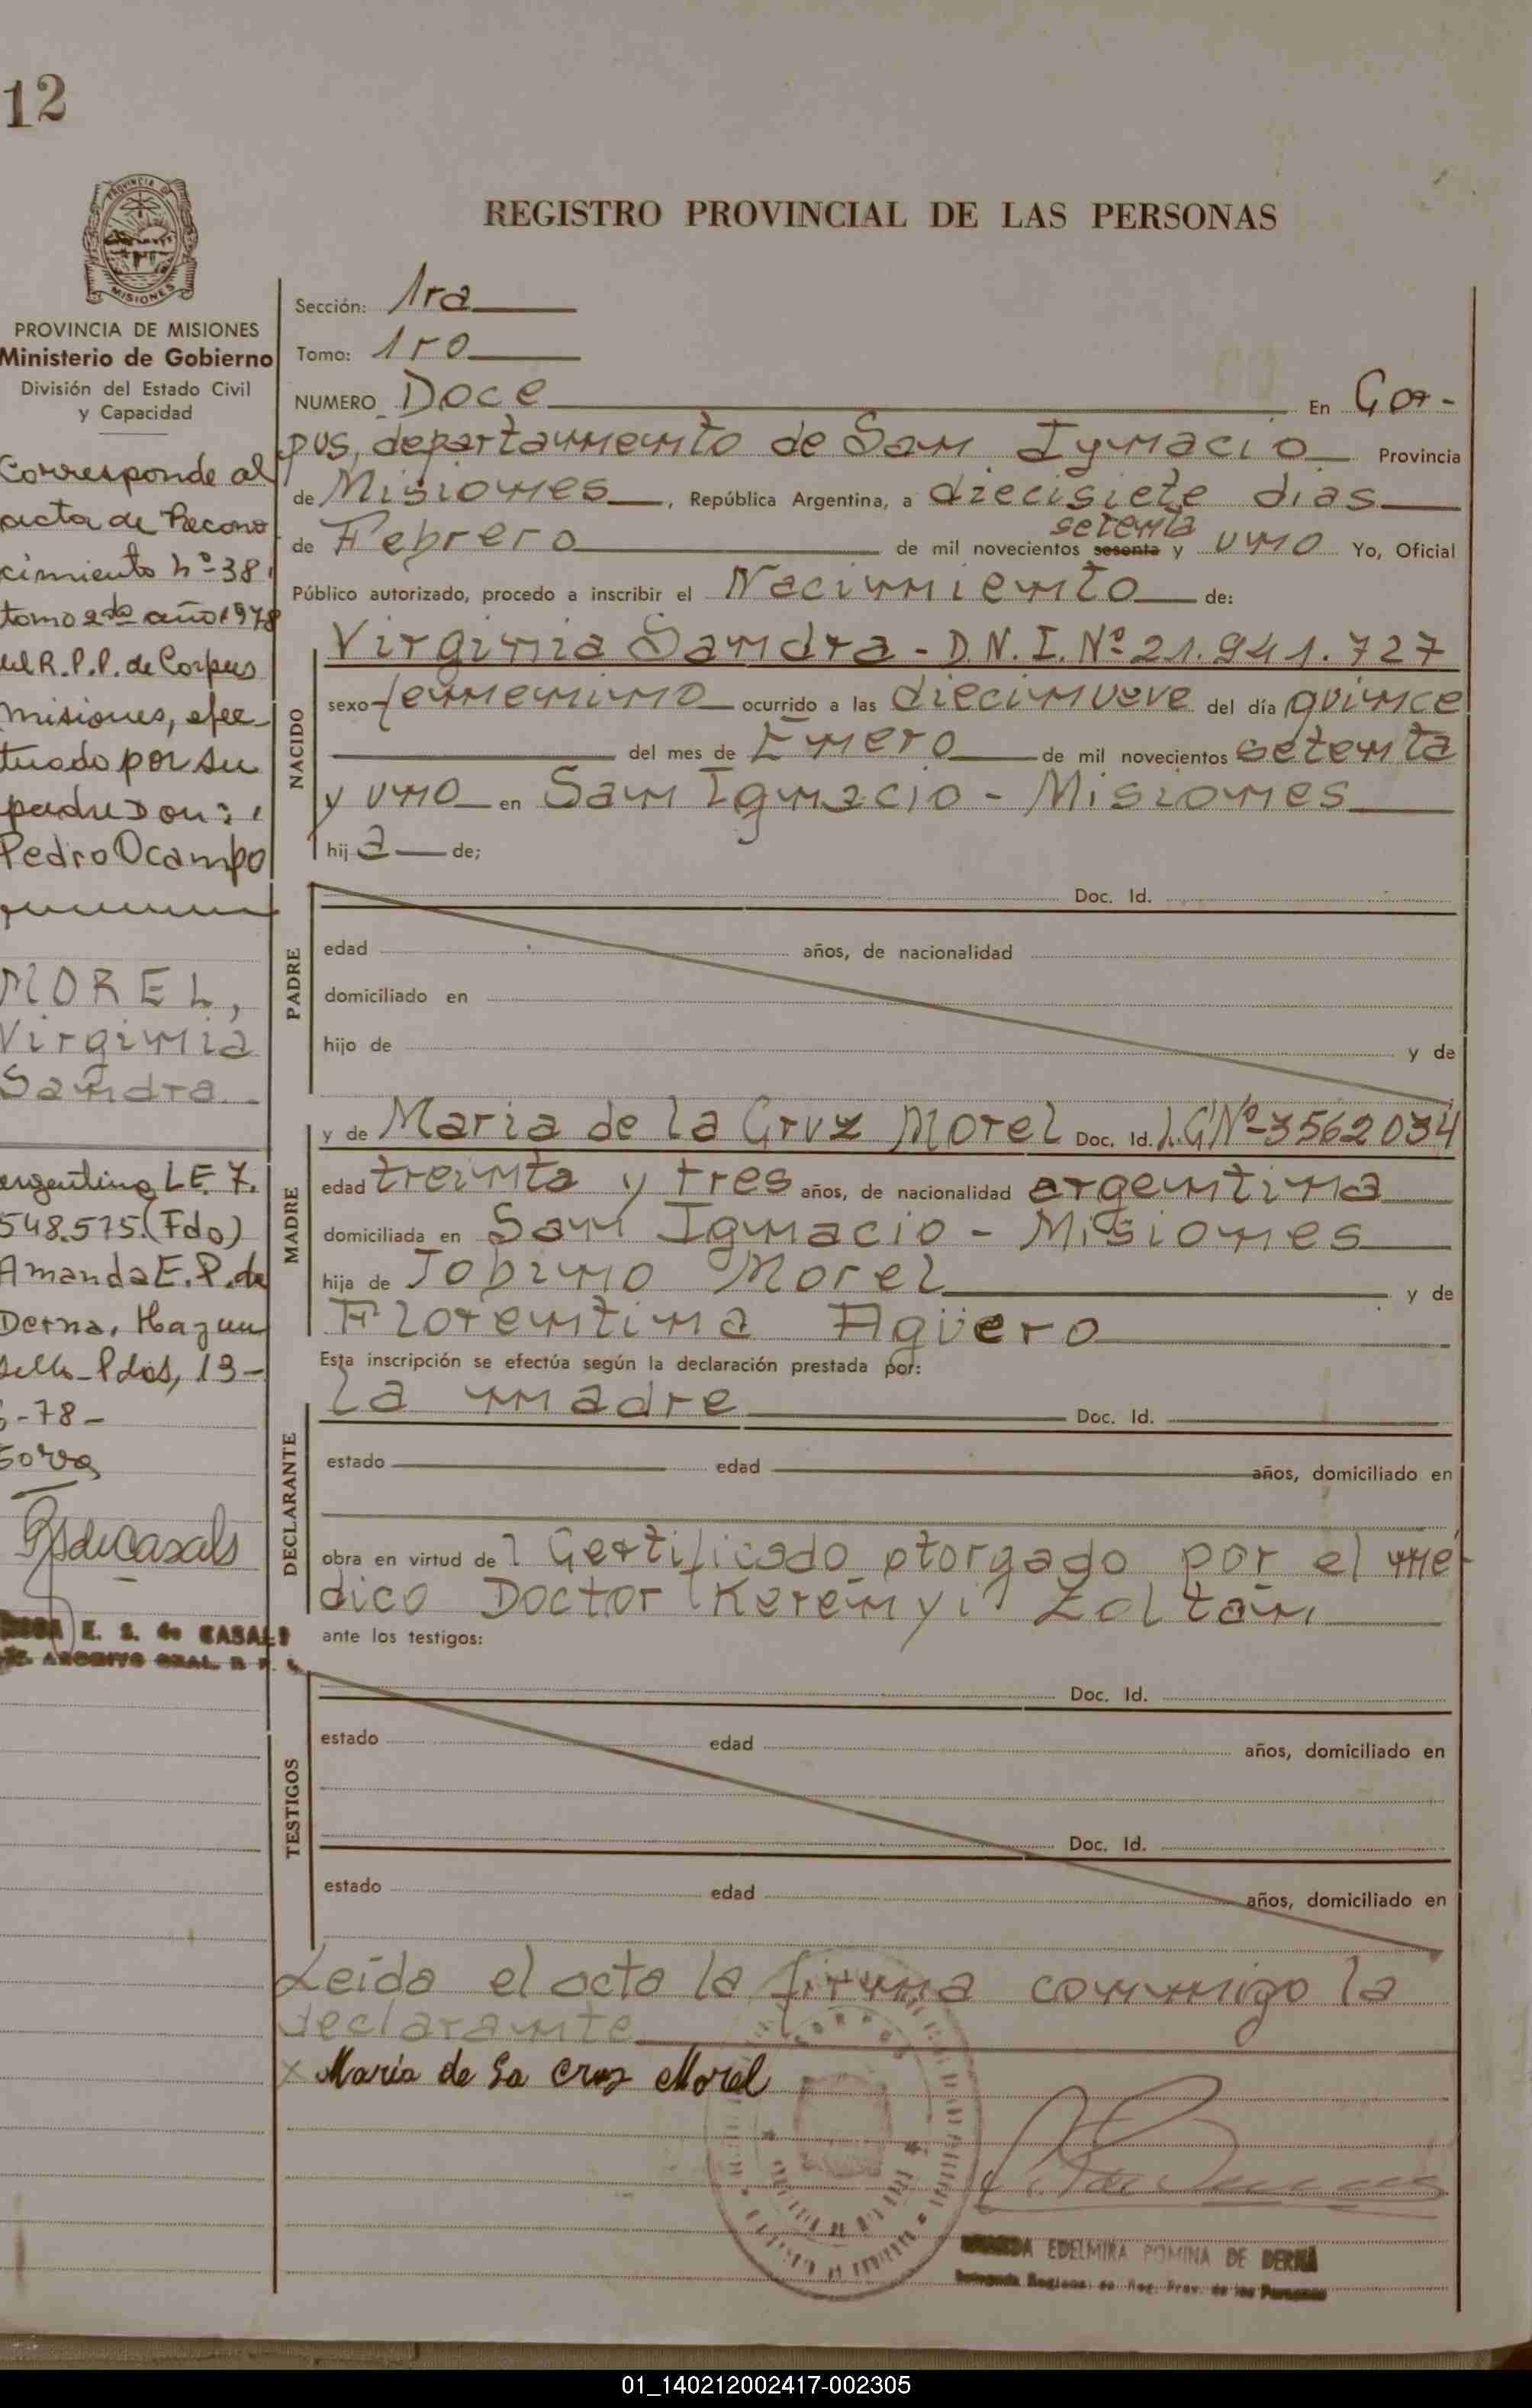 12
REGISTRO PROVINCIAL DE LAS PERSONAS
PROVINCIA DE MISIONES
Ministerio de Gobierno
División del Estado Civil
y Capacidad
Corresponde al
acta de Recono
cimiento nº 38
tomo 2do año 1978
del R.P.P. de Corpus
misiones, efec-
tuado por su
padre Don:
Pedro Ocampo
MOREL,
Virginia
Sandra.-
argentino LE. 7.
548.575. (Fdo)
Amanda E. P. de
Derna. Hay un
sello - Pdas, 13-
-78-
E. S. de CASALS
ARCHIVO GRAL. R. P.
Sección: 1ra
Tomo: 1ro
NUMERO Doce En Cor-
pus, departamento de San Ignacio Provincia
de Misiones, República Argentina, a diecisiete dias
setenta
de Febrero de mil novecientos sesenta y uno Yo, Oficial
Público autorizado, procedo a inscribir el Nacimiento de:
NACIDO
Virginia Sandra - D.N.I. Nº 21.941.727
sexo femenino ocurrido a las diecinueve del día quince
del mes de Enero de mil novecientos setenta
y uno en San Ignacio - Misiones
hija de;
PADRE
Doc. Id.
edad años, de nacionalidad
domiciliado en
hijo de y de
MADRE
y de Maria de la Cruz Morel Doc. Id. L.C Nº 3562034
edad treinta y tres años, de nacionalidad argentina
domiciliada en San Ignacio - Misiones
hija de Jobino Morel y de
Florentina Agüero
Esta inscripción se efectúa según la declaración prestada por:
DECLARANTE
la madre Doc. Id.
estado edad años, domiciliado en
obra en virtud del Certificado otorgado por el mé-
dico Doctor Kerényi Zoltán
ante los testigos:
TESTIGOS
Doc. Id.
estado edad años, domiciliado en
Doc. Id.
estado edad años, domiciliado en
Leída el acta la firma conmigo la
declarante
x María de La Cruz Morel
AMANDA EDELMIRA POMINA DE DERNA
Delegada Regional de Reg. Prov. de las Personas
01_140212002417-002305